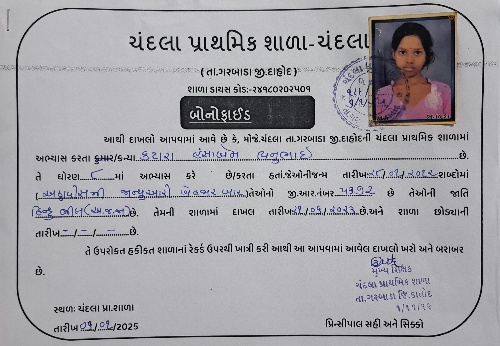 ચંદલા પ્રાથમિક શાળા-ચંદલા
(તા.ગરબાડા જી.દાહોદ)
શાળા ડાયસ કોડ:-૨૪૧૮૦૨૦૨૫૦૧
બોનોફાઈડ
આથી દાખલો આપવામાં આવે છે કે, મોજે.ચંદલા તા.ગરબાડા જી.દાહોદની ચંદલા પ્રાથમિક શાળામાં
અભ્યાસ કરતા કુમાર/કન્યા છે.
તે ધોરણ ૮ માં અભ્યાસ કરે છે/કરતા હતાં.જેઓનીજન્મ તારીખ શબ્દોમાં
( જાન્યુઆરી બે હજાર બાર )તેઓનો જી.આર.નંબર ૫૩૭૨ છે તેઓની જાતિ
હિન્દુ ભીલ(અ.જ.જા) છે. તેમની શાળામાં દાખલ તારીખ છે.અને શાળા છોડ્યાની
તારીખ - / - / - છે.
તે ઉપરોક્ત હકીકત શાળાનાં રેકર્ડ ઉપરથી ખાત્રી કરી આથી આ આપવામાં આવેલ દાખલો ખરો અને બરાબર
છે.
મુખ્ય શિક્ષક
ચંદલા પ્રાથમિક શાળા
તા.ગરબાડા જિ.દાહોદ
સ્થળ: ચંદલા પ્રા.શાળા
તારીખ ૦૧/૦૧/2025
પ્રિન્સીપાલ સહી અને સિક્કો